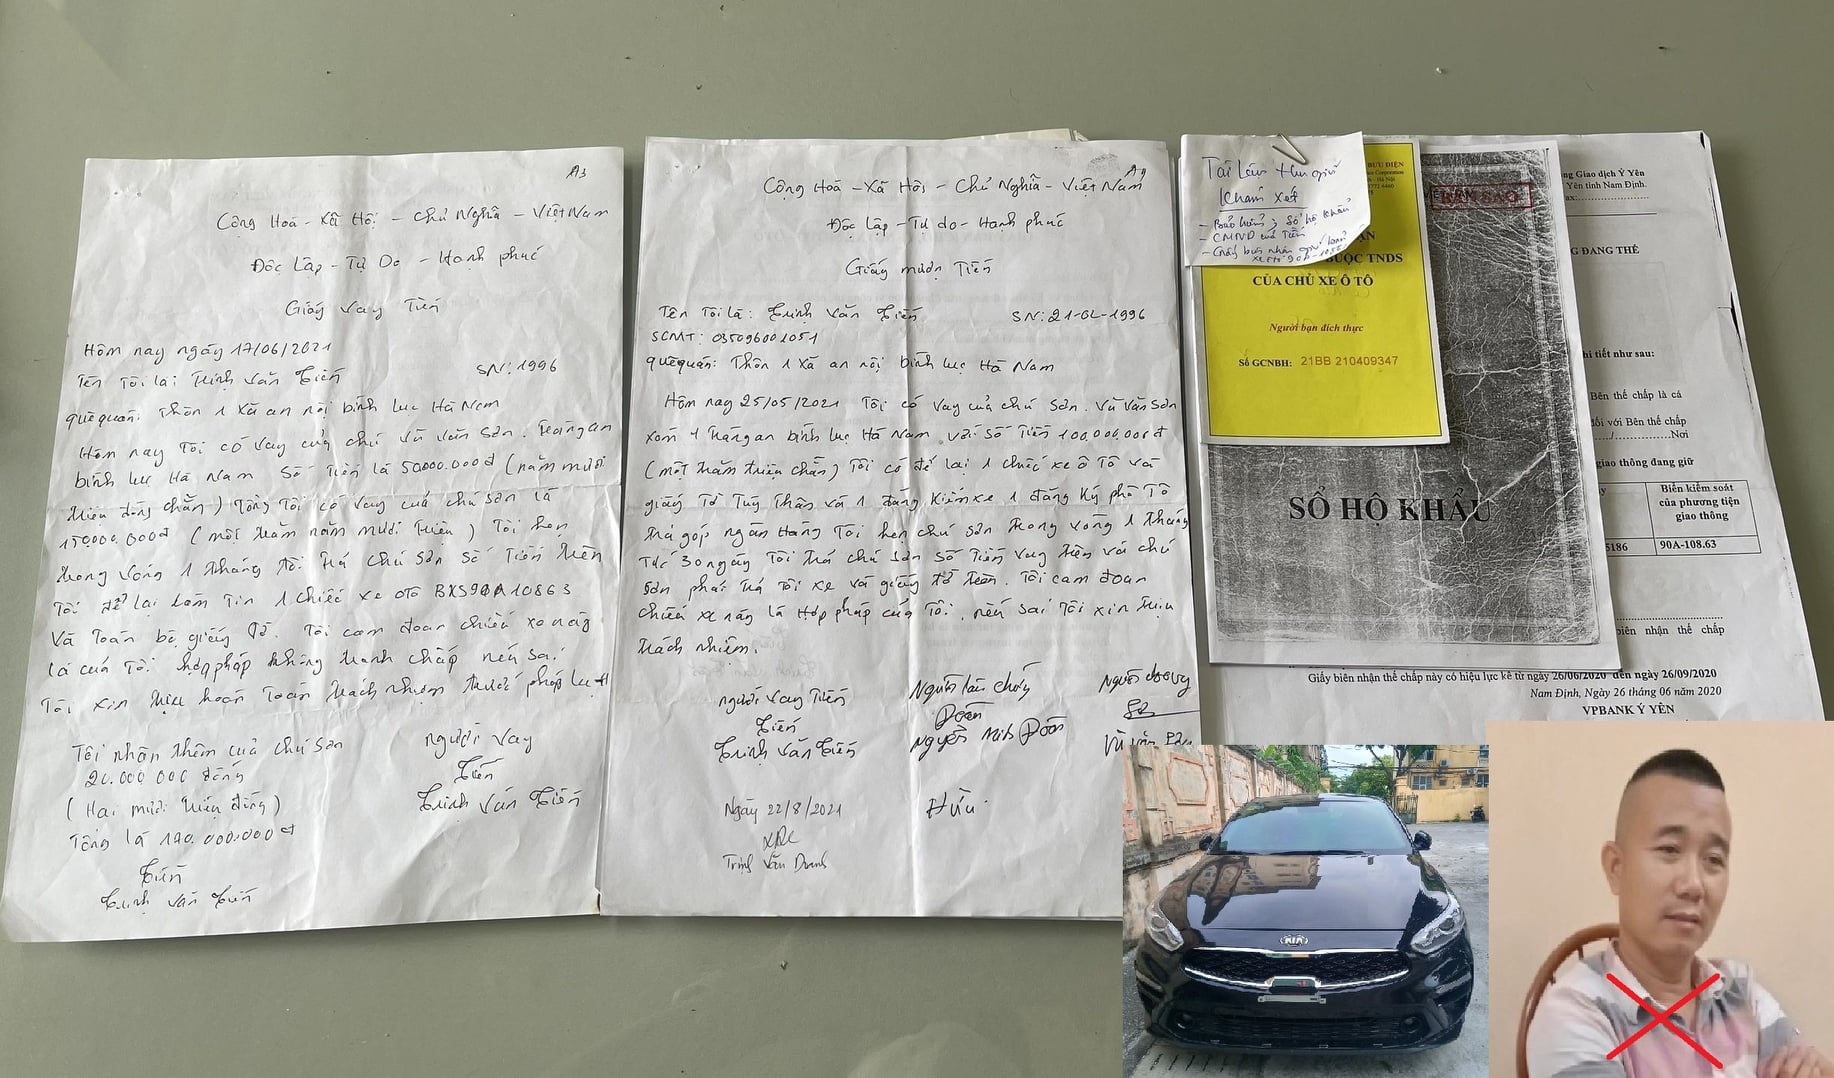 A3
Cộng Hoà - Xã Hội - Chủ Nghĩa - Việt Nam
Độc Lập - Tự Do - Hạnh phúc
Giấy vay Tiền
Hôm nay ngày 17/06/2021
Tên Tôi là: Trịnh Văn Tiến SN: 1996
quê quán: Thôn 1 xã an nội bình lục Hà Nam
Hôm nay Tôi có vay của chú vũ văn Sơn. Tràng an
bình lục Hà Nam Số Tiền là 50.000.000đ (năm mươi
triệu đồng chẵn) Tổng Tôi có vay của chú Sơn là
150.000.000đ (một trăm năm mươi triệu) Tôi hẹn
trong vòng 1 tháng tôi trả chú Sơn số tiền trên
Tôi để lại làm tin 1 chiếc xe ôtô BKS 90A 10863
và toàn bộ giấy tờ. Tôi cam đoan chiếc xe này
là của Tôi hợp pháp không tranh chấp nếu sai
Tôi xin chịu hoàn toàn trách nhiệm trước pháp luật
Tôi nhận thêm của chú Sơn
20.000.000 đồng
(Hai mươi triệu đồng)
Tổng là 170.000.000đ
Tiến
Trịnh Văn Tiến
người vay
Tiến
Trịnh Văn Tiến
Cộng Hoà - Xã Hội - Chủ Nghĩa - Việt Nam
Độc Lập - Tự do - Hạnh phúc
Giấy mượn Tiền
Tên Tôi là: Trịnh Văn Tiến SN: 21-02-1996
SCMT: 035096001051
quê quán: Thôn 1 xã an nội bình lục Hà Nam
Hôm nay 25/05/2021 Tôi có vay của chú Sơn. Vũ Văn Sơn
xóm 1 Tràng an bình lục Hà Nam, với số Tiền 100.000.000đ
(một trăm triệu chẵn) Tôi có để lại 1 chiếc xe ô Tô và
giấy Tờ Tuỳ Thân và 1 đăng kiểm xe 1 đăng ký phô Tô
trả góp ngân Hàng Tôi hẹn chú Sơn trong vòng 1 tháng
tức 30 ngày Tôi trả chú Sơn số Tiền vay trên và chú
Sơn phải trả tôi xe và giấy tờ trên. Tôi cam đoan
chiếc xe này là Hợp pháp của Tôi, nếu sai Tôi xin chịu
trách nhiệm.
người vay Tiền
Tiến
Trịnh Văn Tiến
Người làm chứng
Đoàn
Nguyễn Minh Đoàn
Người cho vay
Vũ Văn Sơn
Ngày 22/8/2021
Trịnh Văn Doanh
Hữu
Tài Liệu thu giữ
khám xét
- Bảo hiểm; Sổ hộ khẩu
- CMND của Tiến
- Giấy biên nhận
BƯU ĐIỆN
BUỘC TNDS
CỦA CHỦ XE Ô TÔ
Người bạn đích thực
Số GCNBH: 21BB 210409347
BẢN SAO
SỔ HỘ KHẨU
Giao dịch Ý Yên
Yên tỉnh Nam Định.
G ĐANG THẾ
hi tiết như sau:
Bên thế chấp là cá
đối với Bên thế chấp
Nơi
giao thông đang giữ
Biển kiểm soát
của phương tiện
giao thông
5186 90A-108.63
biên nhận thế chấp
Giấy biên nhận thế chấp này có hiệu lực kể từ ngày 26/06/2020 đến ngày 26/09/2020
Nam Định, Ngày 26 tháng 06 năm 2020
VPBANK Ý YÊN
KIA